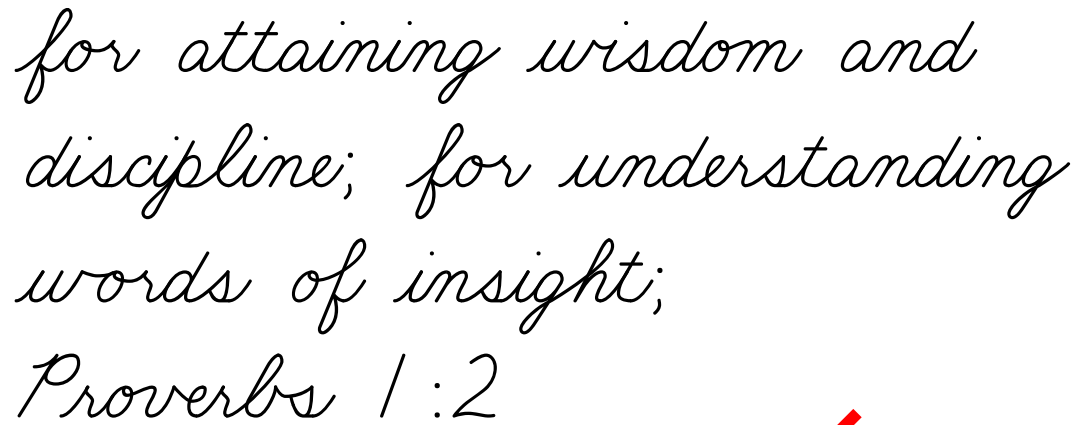 for attaining wisdom and
discipline; for understanding
words of insight;
Proverbs 1:2